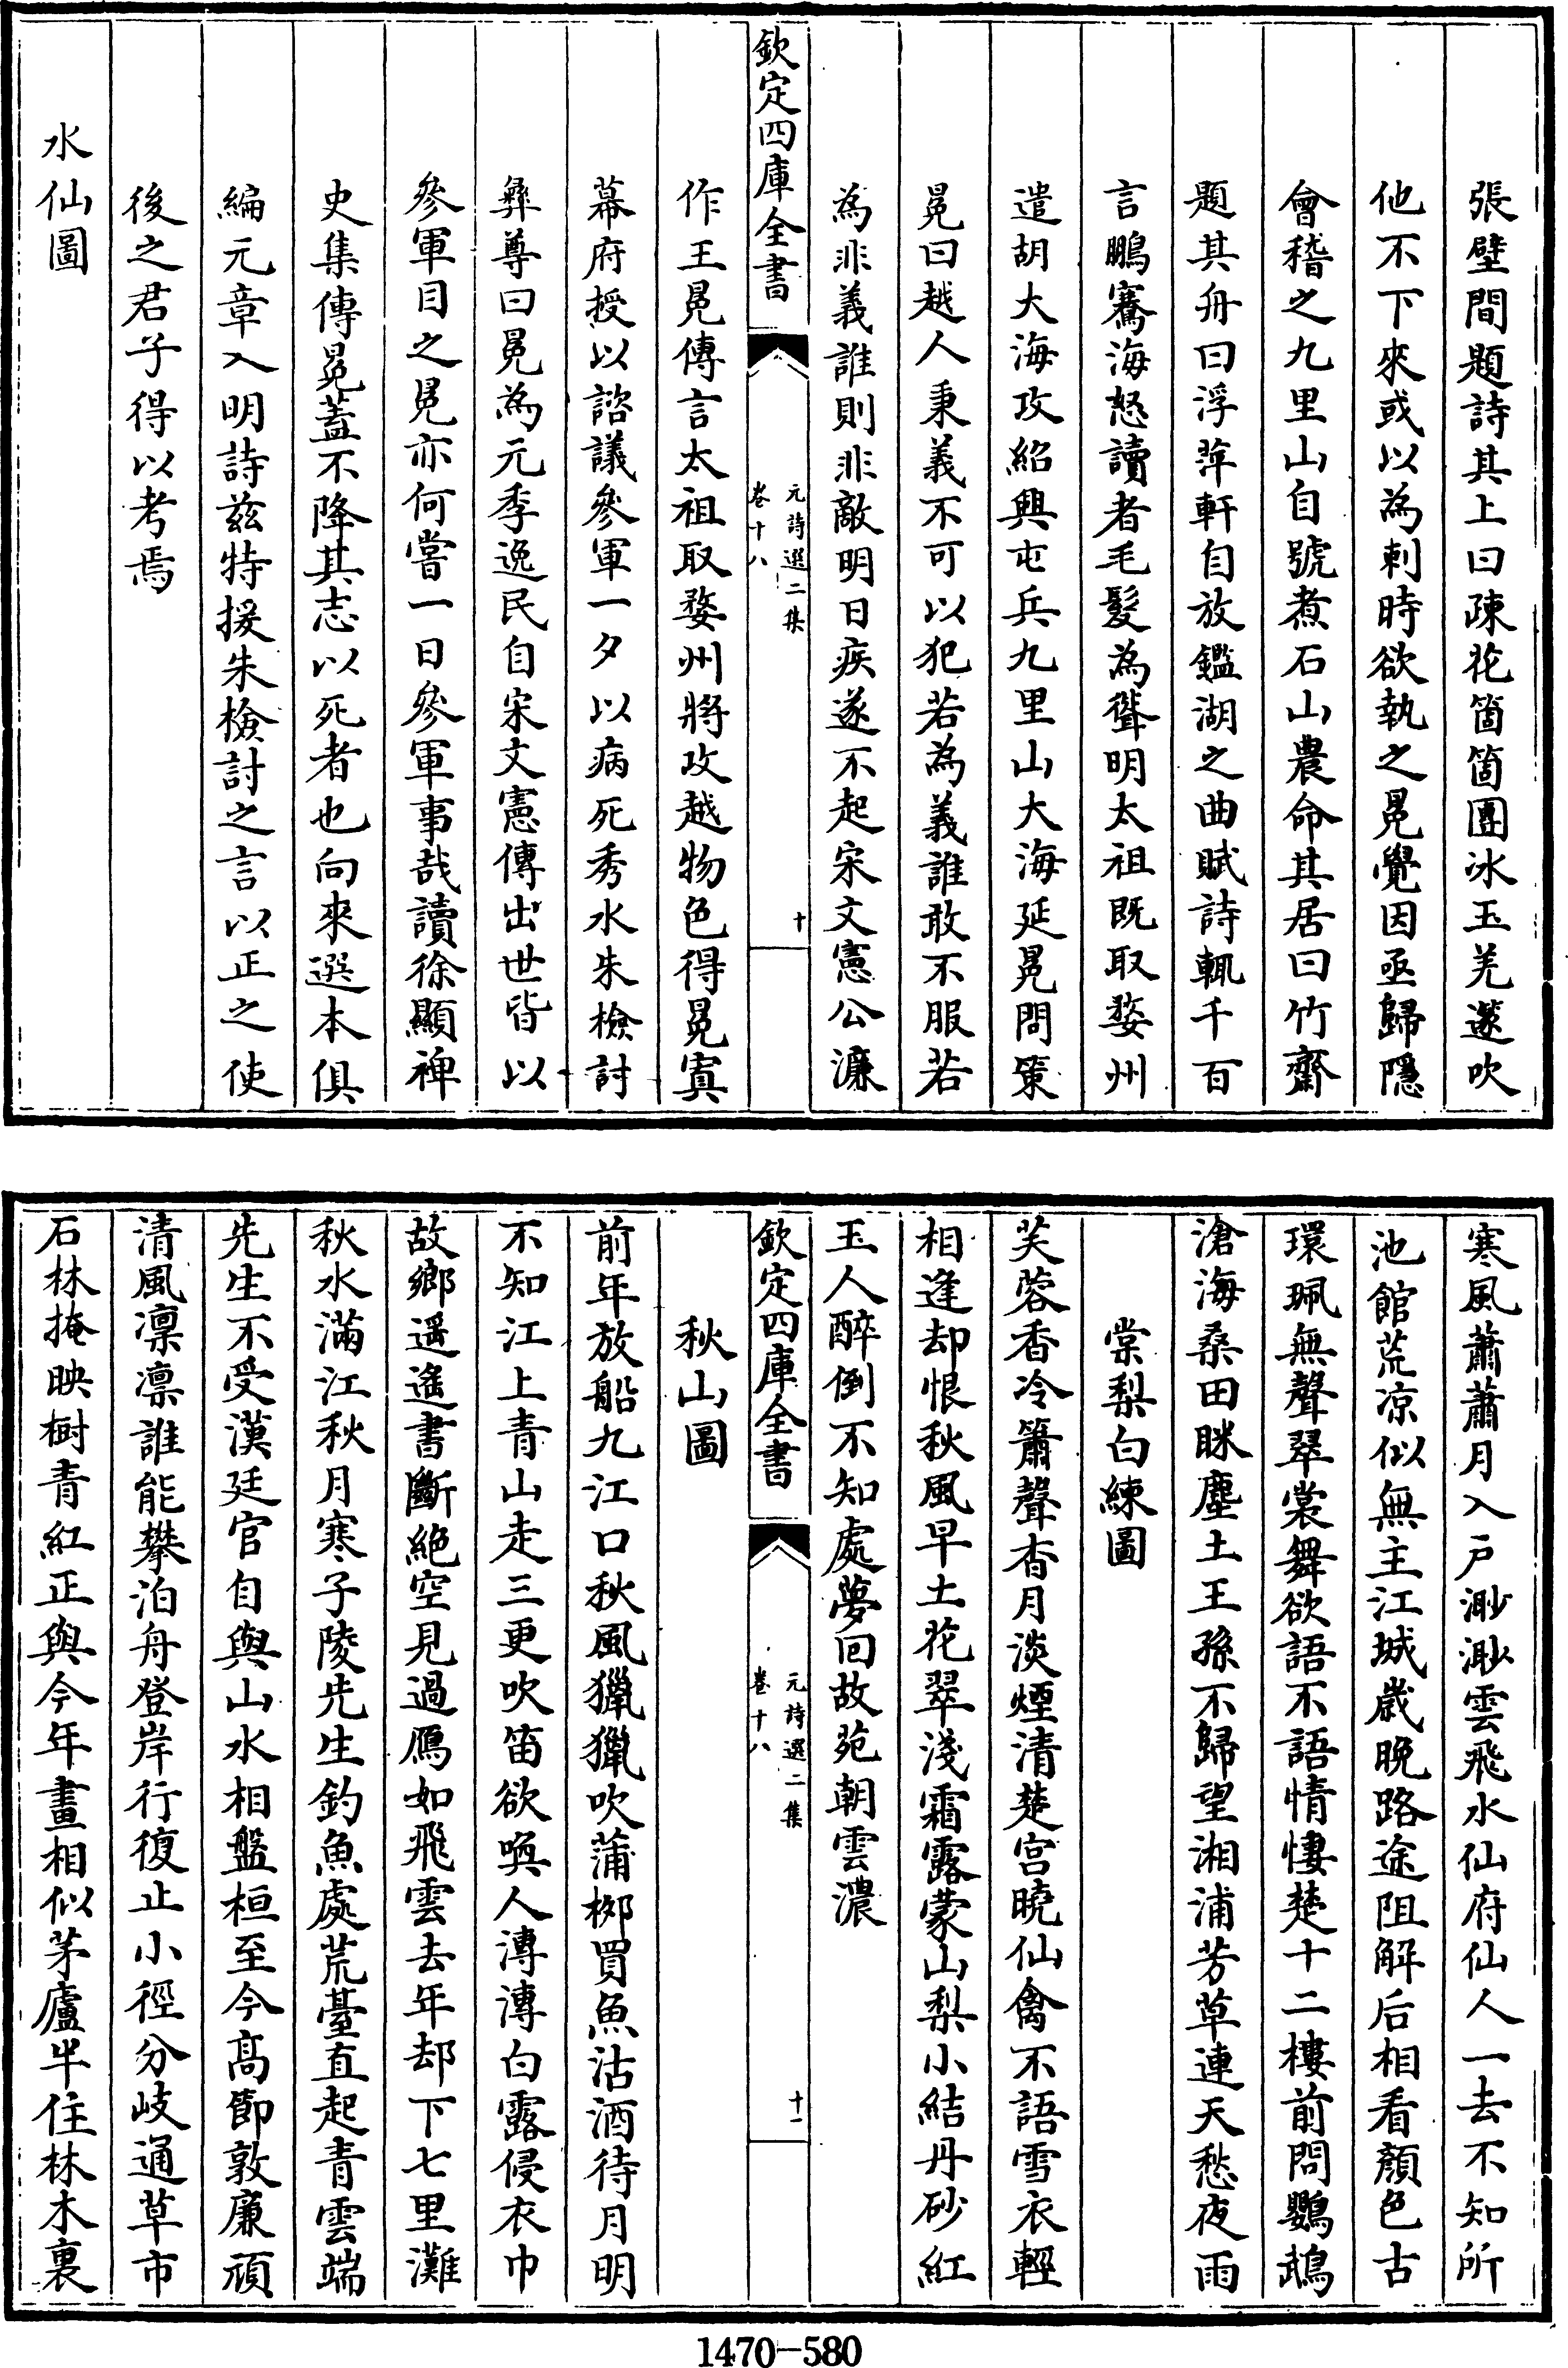 張壁間題詩其上曰疎花箇箇團冰玉羌邃吹
他不下來或以為刺時欲執之冕覺因亟歸隱
會稽之九里山自號煮石山農命其居曰竹齋
題其舟曰浮萍軒自放鑑湖之曲賦詩輒千百
言鵬騫海怒讀者毛髮為聳明太祖既取婺州
遣胡大海攻紹興屯兵九里山大海延冕問策
冕曰越人秉義不可以犯若為義誰敢不服若
為非義誰則非敵明日疾遂不起宋文憲公濂
欽定四庫全書
元詩選二集
卷十八
十
作王冕傳言太祖取婺州將攻越物色得冕寘
幕府授以諮議參軍一夕以病死秀水朱檢討
彝尊曰冕為元季逸民自宋文憲傳出世皆以
參軍目之冕亦何嘗一日參軍事哉讀徐顯稗
史集傳冕蓋不降其志以死者也向來選本俱
編元章入明詩茲特援朱檢討之言以正之使
後之君子得以考焉
水仙圖
寒風蕭蕭月入戶渺渺雲飛水仙府仙人一去不知所
池館荒凉似無主江城歲晚路途阻解后相看顏色古
環珮無聲翠裳舞欲語不語情悽楚十二樓前問鸚鵡
滄海桑田眯塵土王孫不歸望湘浦芳草連天愁夜雨
棠梨白練圖
芙蓉香冷簫聲杳月淡煙清楚宮曉仙禽不語雪衣輕
相逢却恨秋風早土花翠淺霜露蒙山梨小結丹砂紅
玉人醉倒不知處夢回故苑朝雲濃
欽定四庫全書
元詩選二集
卷十八
十一
秋山圖
前年放船九江口秋風獵獵吹蒲栁買魚沽酒待月明
不知江上青山走三更吹笛欲喚人漙漙白露侵衣巾
故鄉遥遥書斷絶空見過鴈如飛雲去年却下七里灘
秋水滿江秋月寒子陵先生釣魚處荒臺直起青雲端
先生不受漢廷官自與山水相盤桓至今髙節敦廉頑
清風凛凛誰能攀泊舟登岸行復止小徑分岐通草市
石林掩映樹青紅正與今年畫相似茅廬半住林木裏
1470-580